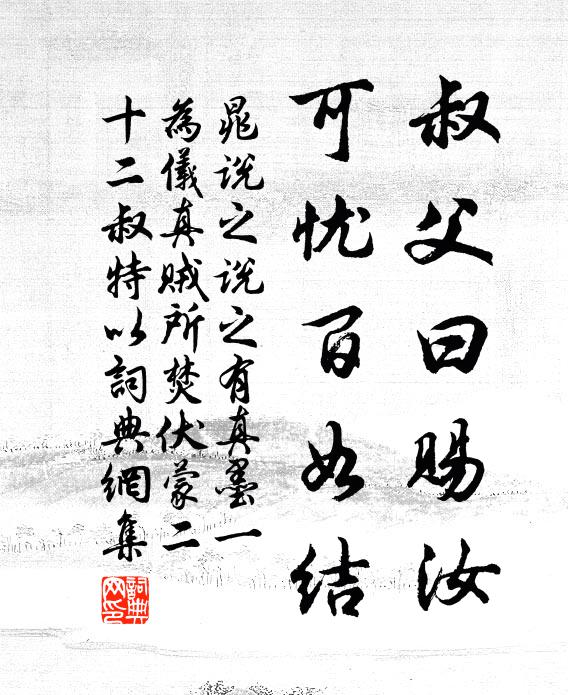 叔父曰賜汝
可忧百如结
晁说之说之有真墨一
為儀真贼所焚伏蒙二
十二叔特以詞典網集
詞典网印